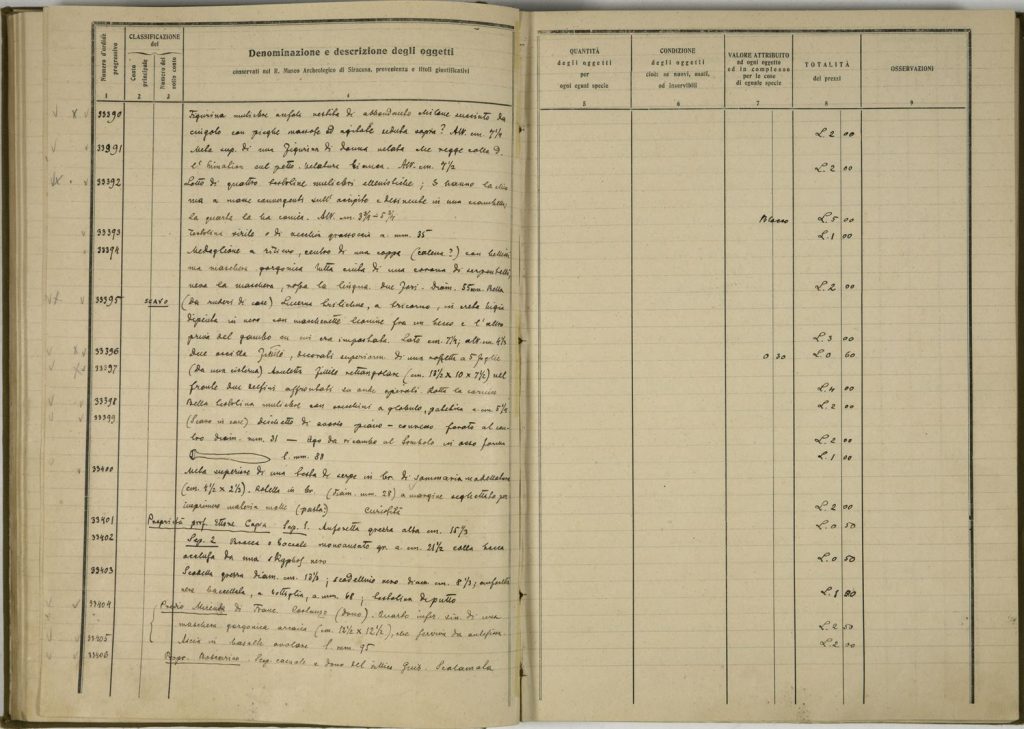 Numero d'ordine progressivo
CLASSIFICAZIONE del
Conto principale
Numero del sotto conto
Denominazione e descrizione degli oggetti
conservati nel R. Museo Archeologico di Siracusa, provenienza e titoli giustificativi
1 2 3 4
33390 Figurina muliebre acefala vestita di abbondante succinto da
cingolo con pieghe mosse ed agitate seduta sopra? Alt. cm. 7 1/4
33391 Metà sup. di una figurina di donna velata che regge colla D.
l'himation sul petto. velatura bianca. Alt. cm. 7 1/2
33392 Lotto di quattro testoline muliebri ellenistiche; 3 hanno la
a mone convergenti sull' occipite e desinente in una
la quarta la ha conica. Alt. cm. 3 3/4 - 5
33393 Testolina virile o di vecchia grassoccia a. mm. 35
33394 Medaglione a rilievo, centro di una coppa (calena?) con
ma maschera gorgonica tutta cinta di una corona di
nera la maschera, rossa la lingua. due fori. Diam. 55 mm. Bella
33395 SCAVO (da ruderi di case) Lucerna bilicne, a tricorno, in creta bigia
dipinta in nero con mascherette leonine fra un becco e l'altro
priva del gambo su cui era impostata. Lato cm. 7 1/4; alt. cm. 4
33396 due oscilla fittili, decorati superiorm. di una rosetta a 5 foglie
33397 (Da una cisterna) Auletta fittile rettangolare (cm. 13 1/2 x 10 x 7 1/2) nel
fronte due affrontati su onde Rotta la cornice
33398 Bella testolina muliebre con orecchini a globulo, a. cm. 5 1/2
33399 (Scavo in case) dischetto di avorio piano-convesso forato al cen-
tro diam. mm. 31 — Ago da ricamo al tombolo in osso forma
l. mm. 38
33400 Metà superiore di una testa di serpe in br. di sommaria modellatura
(cm. 4 1/2 x 2 1/2). Rotella in br. (diam. mm. 28) a margine seghettato per
imprimere materia molle (pasta?) curiosità
33401 Proprietà prof. Ettore Capra Sep. 1. Anforetta grezza alta cm. 15
33402 Sep. 2 Brocca o boccale monoansato gr. a cm. 21 1/2 colla bocca
occlusa da una skyphos nero
33403 Scodella grezza diam. cm. 13 ; scodellino nero diam. cm. 8 ;
nera baccellata, a bottiglia, a mm. 68; testolina di putto
33404 Pietro di Franc. Costanzo (dono). Quarto infer. sin. di una
maschera gorgonica arcaica (cm. 12 1/2 x 12 1/2), che serviva da antefissa
33405 Ascia in basalte ovolare l. mm. 95
33406 Sep. casuale e dono del Gius. Scatamala
QUANTITÀ degli oggetti per ogni egual specie
CONDIZIONE degli oggetti cioè: se nuovi, usati, od inservibili
VALORE ATTRIBUITO ad ogni oggetto ed in complesso per le cose di eguale specie
TOTALITÀ dei prezzi
OSSERVAZIONI
5 6 7 8 9
L. 2 00
L. 2 00
Blocco L. 5 00
L. 1 00
L. 2 00
L. 3 00
0 30 L. 0 60
L. 4 00
L. 2 00
L. 2 00
L. 1 00
L. 2 00
L. 0 50
L. 0 50
L. 1 80
L. 2 50
L. 2 00